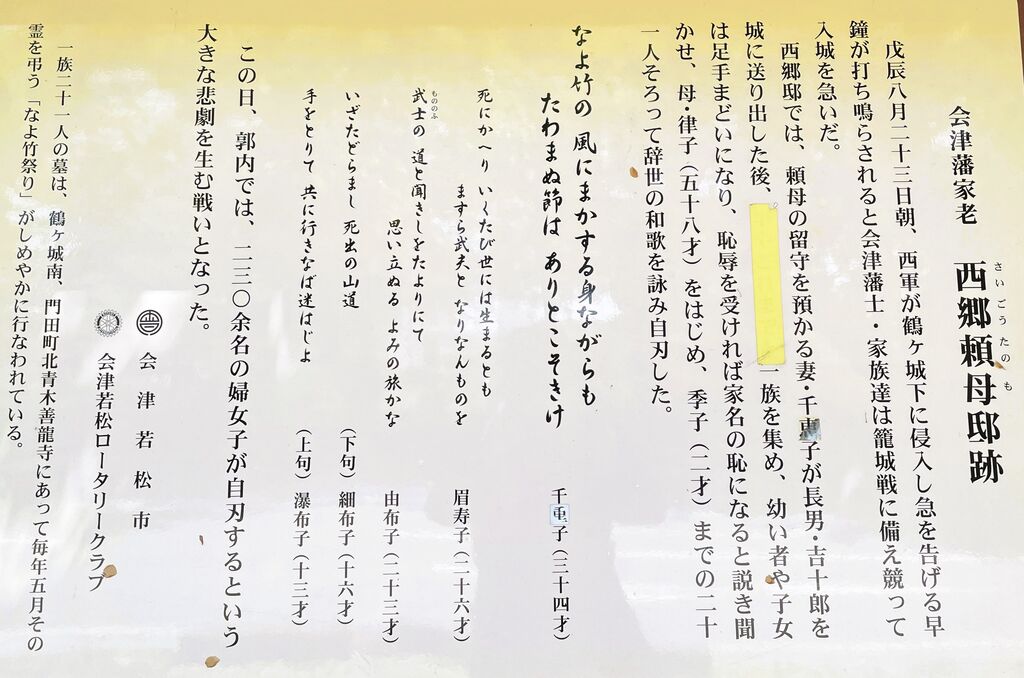 会津藩家老　西郷頼母邸跡
さいごうたのも
戊辰八月二十三日朝、西軍が鶴ヶ城下に侵入し急を告げる早
鐘が打ち鳴らされると会津藩士・家族達は籠城戦に備え競って
入城を急いだ。
西郷邸では、頼母の留守を預かる妻・千恵子が長男・吉十郎を
城に送り出した後、一族を集め、幼い者や子女
は足手まどいになり、恥辱を受ければ家名の恥になると説き聞
かせ、母・律子（五十八才）をはじめ、季子（二才）までの二十
一人そろって辞世の和歌を詠み自刃した。
なよ竹の 風にまかする身ながらも
たわまぬ節は ありとこそきけ
千重子（三十四才）
死にかへり いくたび世には生まるとも
ますら武夫と なりなんものを
眉寿子（二十六才）
武士の 道と聞きしをたよりにて
もののふ
思い立ぬる よみの旅かな
由布子（二十三才）
いざたどらまし 死出の山道
（下句）細布子（十六才）
手をとりて 共に行きなば迷はじよ
（上句）瀑布子（十三才）
この日、郭内では、二三〇余名の婦女子が自刃するという
大きな悲劇を生む戦いとなった。
会津若松市
会津若松ロータリークラブ
一族二十一人の墓は、鶴ヶ城南、門田町北青木善龍寺にあって毎年五月その
霊を弔う「なよ竹祭り」がしめやかに行なわれている。